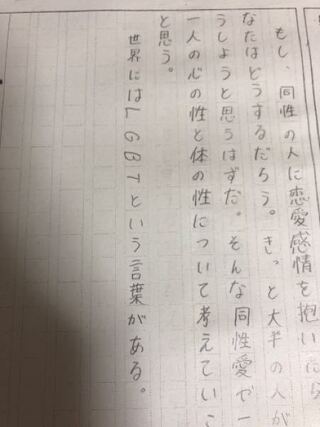 もし、同性の人に恋愛感情を抱いたら
なたはどうするだろう。きっと大半の人が
うしようと思うはずだ。そんな同性愛で一
一人の心の性と体の性について考えていこ
と思う。
世界にはLGBTという言葉がある。